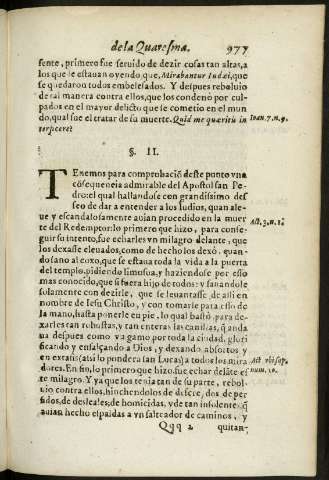 de la Quaresma. 977
sente, primero fue seruido de dezir cosas tan altas, a
los que le estauan oyendo, que, Mirabantur Iudæi, que
se quedaron todos embelesados. Y despues reboluio
de tal manera contra ellos, que los condenò por cul-
pados en el mayor delicto que se cometio en el mun-
do, qual fue el tratar de su muerte. Quid me quæritis in
terficere?
Ioan. 7. n. 9.
§. II.
TEnemos para comprobaciõ deste punto vna
cõsequencia admirable del Apostol san Pe-
dro: el qual hallandose con grandissimo des-
seo de dar a entender a los Iudios, quan ale-
ue y escandalosamente auian procedido en la muer
te del Redemptor: lo primero que hizo, para conse-
guir su intento, fue echarles vn milagro delante, que
los dexasse eleuados, como de hecho los dexò. quan-
do sano al coxo, que se estaua toda la vida a la puerta
del templo, pidiendo limosna, y haziendose por esso
mas conocido, que si fuera hijo de todos: y sanandole
solamente con dezirle, que se leuantasse de alli en
nombre de Iesu Christo, y con tomarle para esso de
la mano, hasta ponerle en pie, lo qual bastò para de-
xarles tan robustas, y tan enteras las canillas, q̃ anda
ua despues como ya gamo por toda la ciudad, glori
ficando y ensalçando a Dios, y dexando absortos y
en extasis (assi lo pondera san Lucas) a todos los mira
dores. En fin, lo primero que hizo, fue echar delãte es
te milagro. Y ya que los tenia tan de su parte, rebol-
uio contra ellos, hinchendolos de
de desleales: de homicidas, y de tan insolente q̃
auian hecho espaldas a vn salteador de caminos, y
Act. 3. n. 1.
Act. vbi sup.
num. 10.
Qqq 2 quitan-